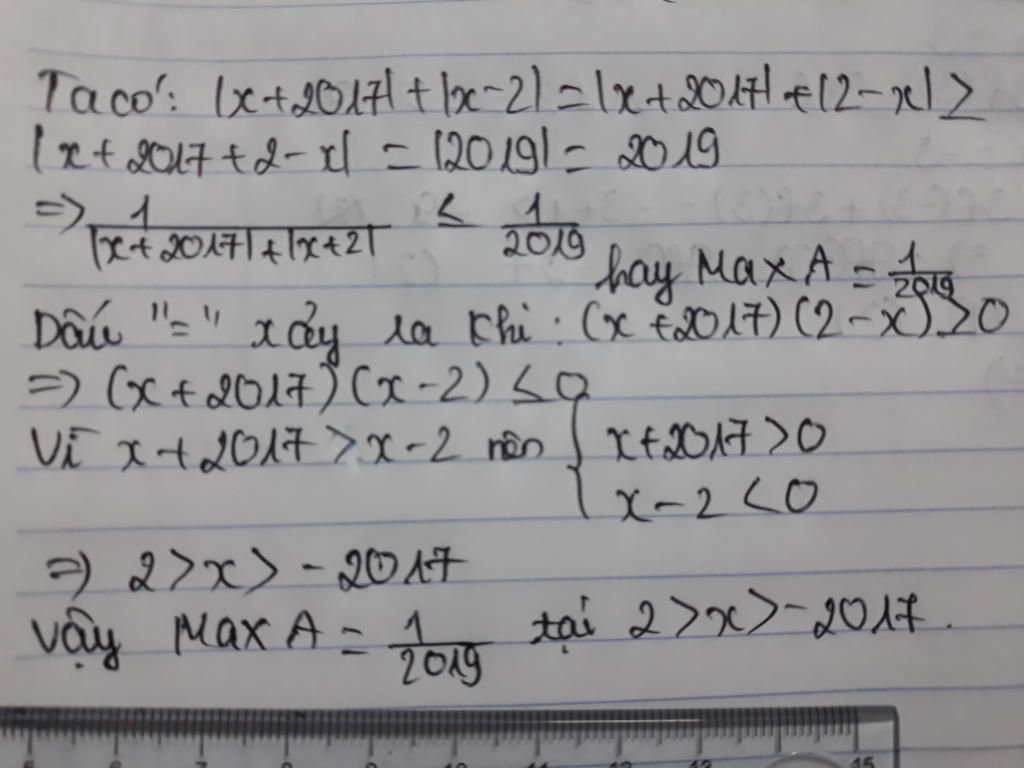 Ta có: |x+2017|+|x-2| = |x+2017|+|2-x| ≥
|x+2017+2-x| = |2019| = 2019
=> 1/(|x+2017|+|x+2|) ≤ 1/2019
hay Max A = 1/2019
Dấu "=" xảy ra khi: (x+2017)(2-x) ≥ 0
=> (x+2017)(x-2) ≤ 0
Vì x+2017 > x-2 nên { x+2017 > 0
x-2 < 0
=> 2 > x > -2017
Vậy Max A = 1/2019 tại 2 > x > -2017.
5 6 7 8 9 10 11 12 13 15